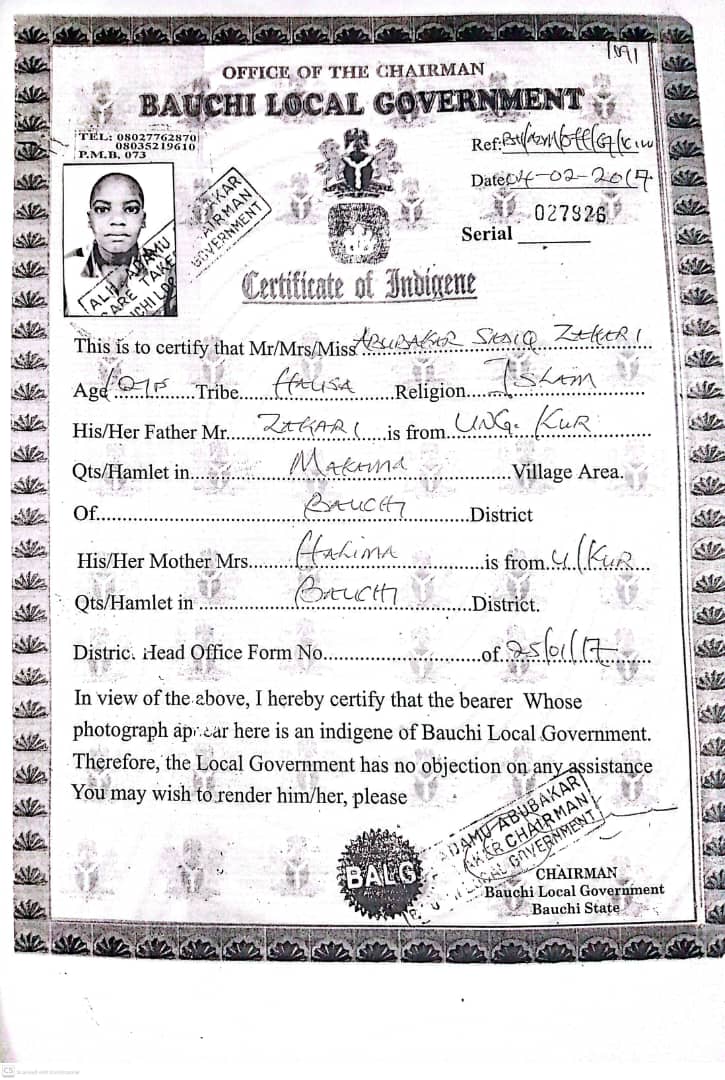 1891
OFFICE OF THE CHAIRMAN
BAUCHI LOCAL GOVERNMENT
TEL: 08027762870
08035219610
P.M.B. 073
Ref:
Date 04-02-2017
027826
Serial
AKAR
AIRMAN
GOVERNMENT
ALH. ADAMU
CARE TAKE
Certificate of Indigene
This is to certify that Mr/Mrs/Miss ABUBAKAR SADIQ ZAKARI
Age 10yrs Tribe HAUSA Religion ISLAM
His/Her Father Mr. ZAKARI is from UNG. KUR
Qts/Hamlet in MAKAMA Village Area.
Of BAUCHI District
His/Her Mother Mrs. HALIMA is from U/KUR
Qts/Hamlet in BAUCHI District.
Distric. Head Office Form No. of 25/01/17
In view of the above, I hereby certify that the bearer Whose
photograph appear here is an indigene of Bauchi Local Government.
Therefore, the Local Government has no objection on any assistance
You may wish to render him/her, please
ADAMU ABUBAKAR
AKER CHAIRMAN
LOCAL GOVERNMENT
BALG
CHAIRMAN
Bauchi Local Government
Bauchi State
CS Scanned with CamScanner